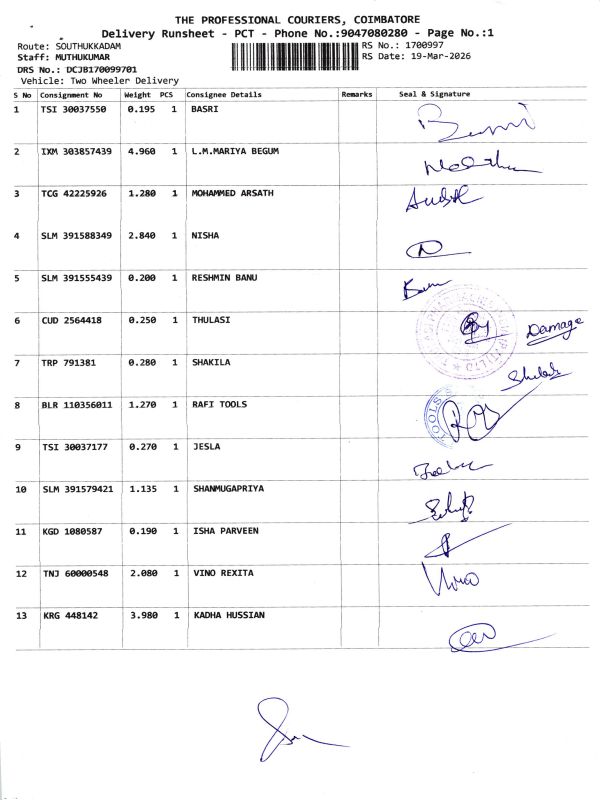 THE PROFESSIONAL COURIERS, COIMBATORE
Delivery Runsheet - PCT - Phone No.:9047080280 - Page No.:1
Route: SOUTHUKKADAM
RS No.: 1700997
Staff: MUTHUKUMAR
RS Date: 19-Mar-2026
DRS No.: DCJB170099701
Vehicle: Two Wheeler Delivery
S No Consignment No Weight PCS Consignee Details Remarks Seal & Signature
1 TSI 30037550 0.195 1 BASRI
2 IXM 303857439 4.960 1 L.M.MARIYA BEGUM
3 TCG 42225926 1.280 1 MOHAMMED ARSATH
4 SLM 391588349 2.840 1 NISHA
5 SLM 391555439 0.200 1 RESHMIN BANU
6 CUD 2564418 0.250 1 THULASI Damage
7 TRP 791381 0.280 1 SHAKILA
8 BLR 110356011 1.270 1 RAFI TOOLS TOOLS
9 TSI 30037177 0.270 1 JESLA
10 SLM 391579421 1.135 1 SHANMUGAPRIYA
11 KGD 1080587 0.190 1 ISHA PARVEEN
12 TNJ 60000548 2.080 1 VINO REXITA Vino
13 KRG 448142 3.980 1 KADHA HUSSIAN